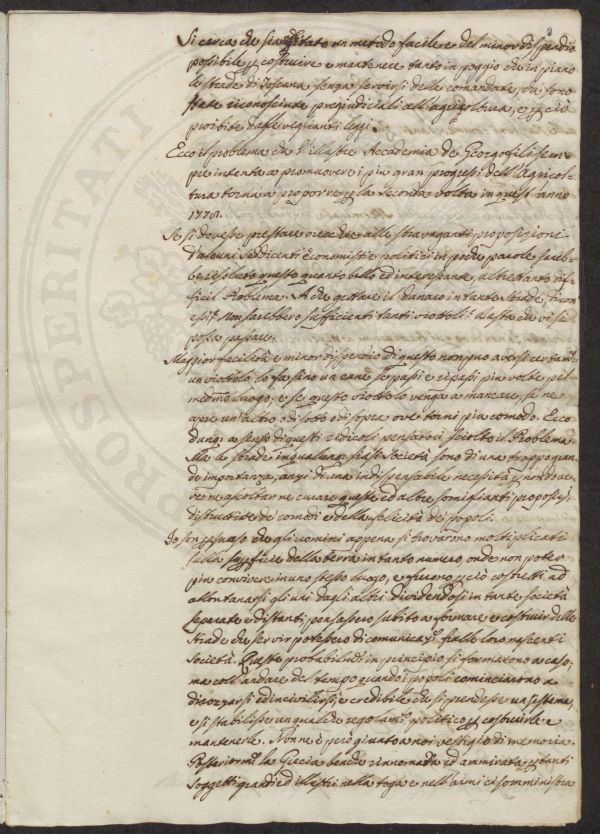 Si cerca che sia additato un metodo facile e del minor dispendio
possibile p costruire e mantenere tanto in poggio che in piano
le strade di Toscana senza servirsi delle comandate, da loro
state riconosciute pregiudiciali all'agricoltura, e p ciò
proibite dalle veglianti leggi.
Ecco il problema che l'illustre Accademia de Georgofili sem=
pre intenta a promuovere i più gran progressi dell'Agricol=
tura torna a proporre p la seconda volta in quest'anno
Se si dovesse prestare orecchie alle stravaganti proposizioni
d'alcuni sedicenti economisti e politici in poche parole sareb=
be risoluto questo quanto bello ed interessante, altrettanto dif=
ficil Problema. A che gettare il danaro in tante strade, dicon
essi? Non sarebbero sufficienti tanti viottoli? Basta che vi si
possa passare.
Maggior facilità e minor dispendio di questo non può aversi certam.te
un viottolo lo fa sino un cane se passi e ripassi più volte pel
med.mo luogo, e se questo viottolo venga a mancare, se ne
apre un'altro o di sotto o di sopra ove torni più comodo. Ecco
dunq. a senso di questi ridicoli pensatori sciolto il Problema.
Ma le strade in qualunq. siasi società sono di una troppo gran=
de importanza, anzi di una indispensabile necessità p non dove=
re ne ascoltar ne curare queste ed altre somiglianti proposiz.i
distruttive de comodi e della felicità de popoli.
Io son psuaso che gli uomini appena si trovarono moltiplicati
sulla supficie della terra in tanto numero, onde non poter
più convivere in uno stesso luogo, e furono p ciò costretti ad
allontanarsi gli uni dagli altri dividendosi in tante società
separate e distanti, pensassero subito a formare e costruir delle
strade che servir potessero di comunicaz.e fra le loro nascenti
società. Queste probabilm.te in principio si formarono a caso,
ma coll'andare del tempo quando i popoli cominciarono a
dirozzarsi ed incivilirsi, è credibile che si prendesse un sistema,
e si stabilisse un qualche regolam.to politico p costruirle e
mantenerle. Non ne è però giunto a noi vestigio di memoria.
Posteriorm.te la Grecia benchè rinomata ed ammirata p tanti
soggetti grandi ed illustri nella toga e nell'armi ci somministra
PROSPERITATI